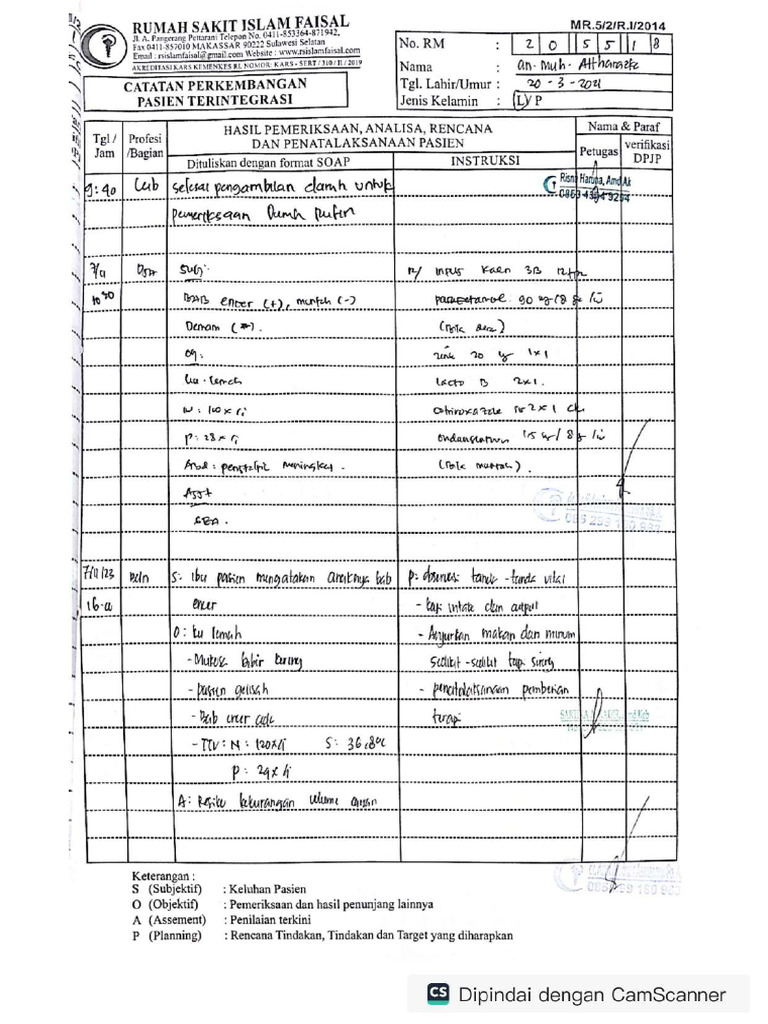 RUMAH SAKIT ISLAM FAISAL
Jl. A. Pangerang Pettarani Telepon No. 0411-853364-871942,
Fax 0411-857010 MAKASSAR 90222 Sulawesi Selatan
Email : rsislamfaisal@gmail.com Website : www.rsislamfaisal.com
AKREDITASI KARS KEMENKES RI, NOMOR: KARS - SERT / 310 / II / 2019
CATATAN PERKEMBANGAN
PASIEN TERINTEGRASI
MR.5/2/R.I/2014
No. RM : 2 0 5 5 1 8
Nama : an. Muh. Attharazka
Tgl. Lahir/Umur : 20-3-2021
Jenis Kelamin : L/P
Tgl / Jam
Profesi /Bagian
HASIL PEMERIKSAAN, ANALISA, RENCANA
DAN PENATALAKSANAAN PASIEN
Dituliskan dengan format SOAP
INSTRUKSI
Nama & Paraf
Petugas
verifikasi DPJP
9:40 Lab selesai pengambilan darah untuk
pemeriksaan Darah Rutin
Risna Haruna, Amd Ak
7/11 Subj:
10.30 BAB encer (+), muntah (-)
Demam
Obj:
N : 120 x/i
P : 28 x/i
Abd : peristaltik meningket.
Asst
GEA.
R/ Infus Kaen 3B 12 tpm
paracetamol 90 mg/8 j/iv
zink 20 mg 1x1
Lacto B 2x1.
2x1 cth
ondansetron 1,5 mg/8 j/iv
7/11/23 S: ibu pasien mengatakan anaknya bab
16.00 encer
O: ku lemah
- Mukosa bibir kering
- pasien gelisah
- Bab encer ada
- TTV: N: 120x/i S: 36,8°c
P: 24x/i
A: Resiko kekurangan volume cairan
P: observasi tanda-tanda vital
- kaji intake dan output
- Anjurkan makan dan minum
sedikit-sedikit tapi sering
- penatalaksanaan pemberian
terapi
Keterangan :
S (Subjektif) : Keluhan Pasien
O (Objektif) : Pemeriksaan dan hasil penunjang lainnya
A (Assement) : Penilaian terkini
P (Planning) : Rencana Tindakan, Tindakan dan Target yang diharapkan
CS Dipindai dengan CamScanner